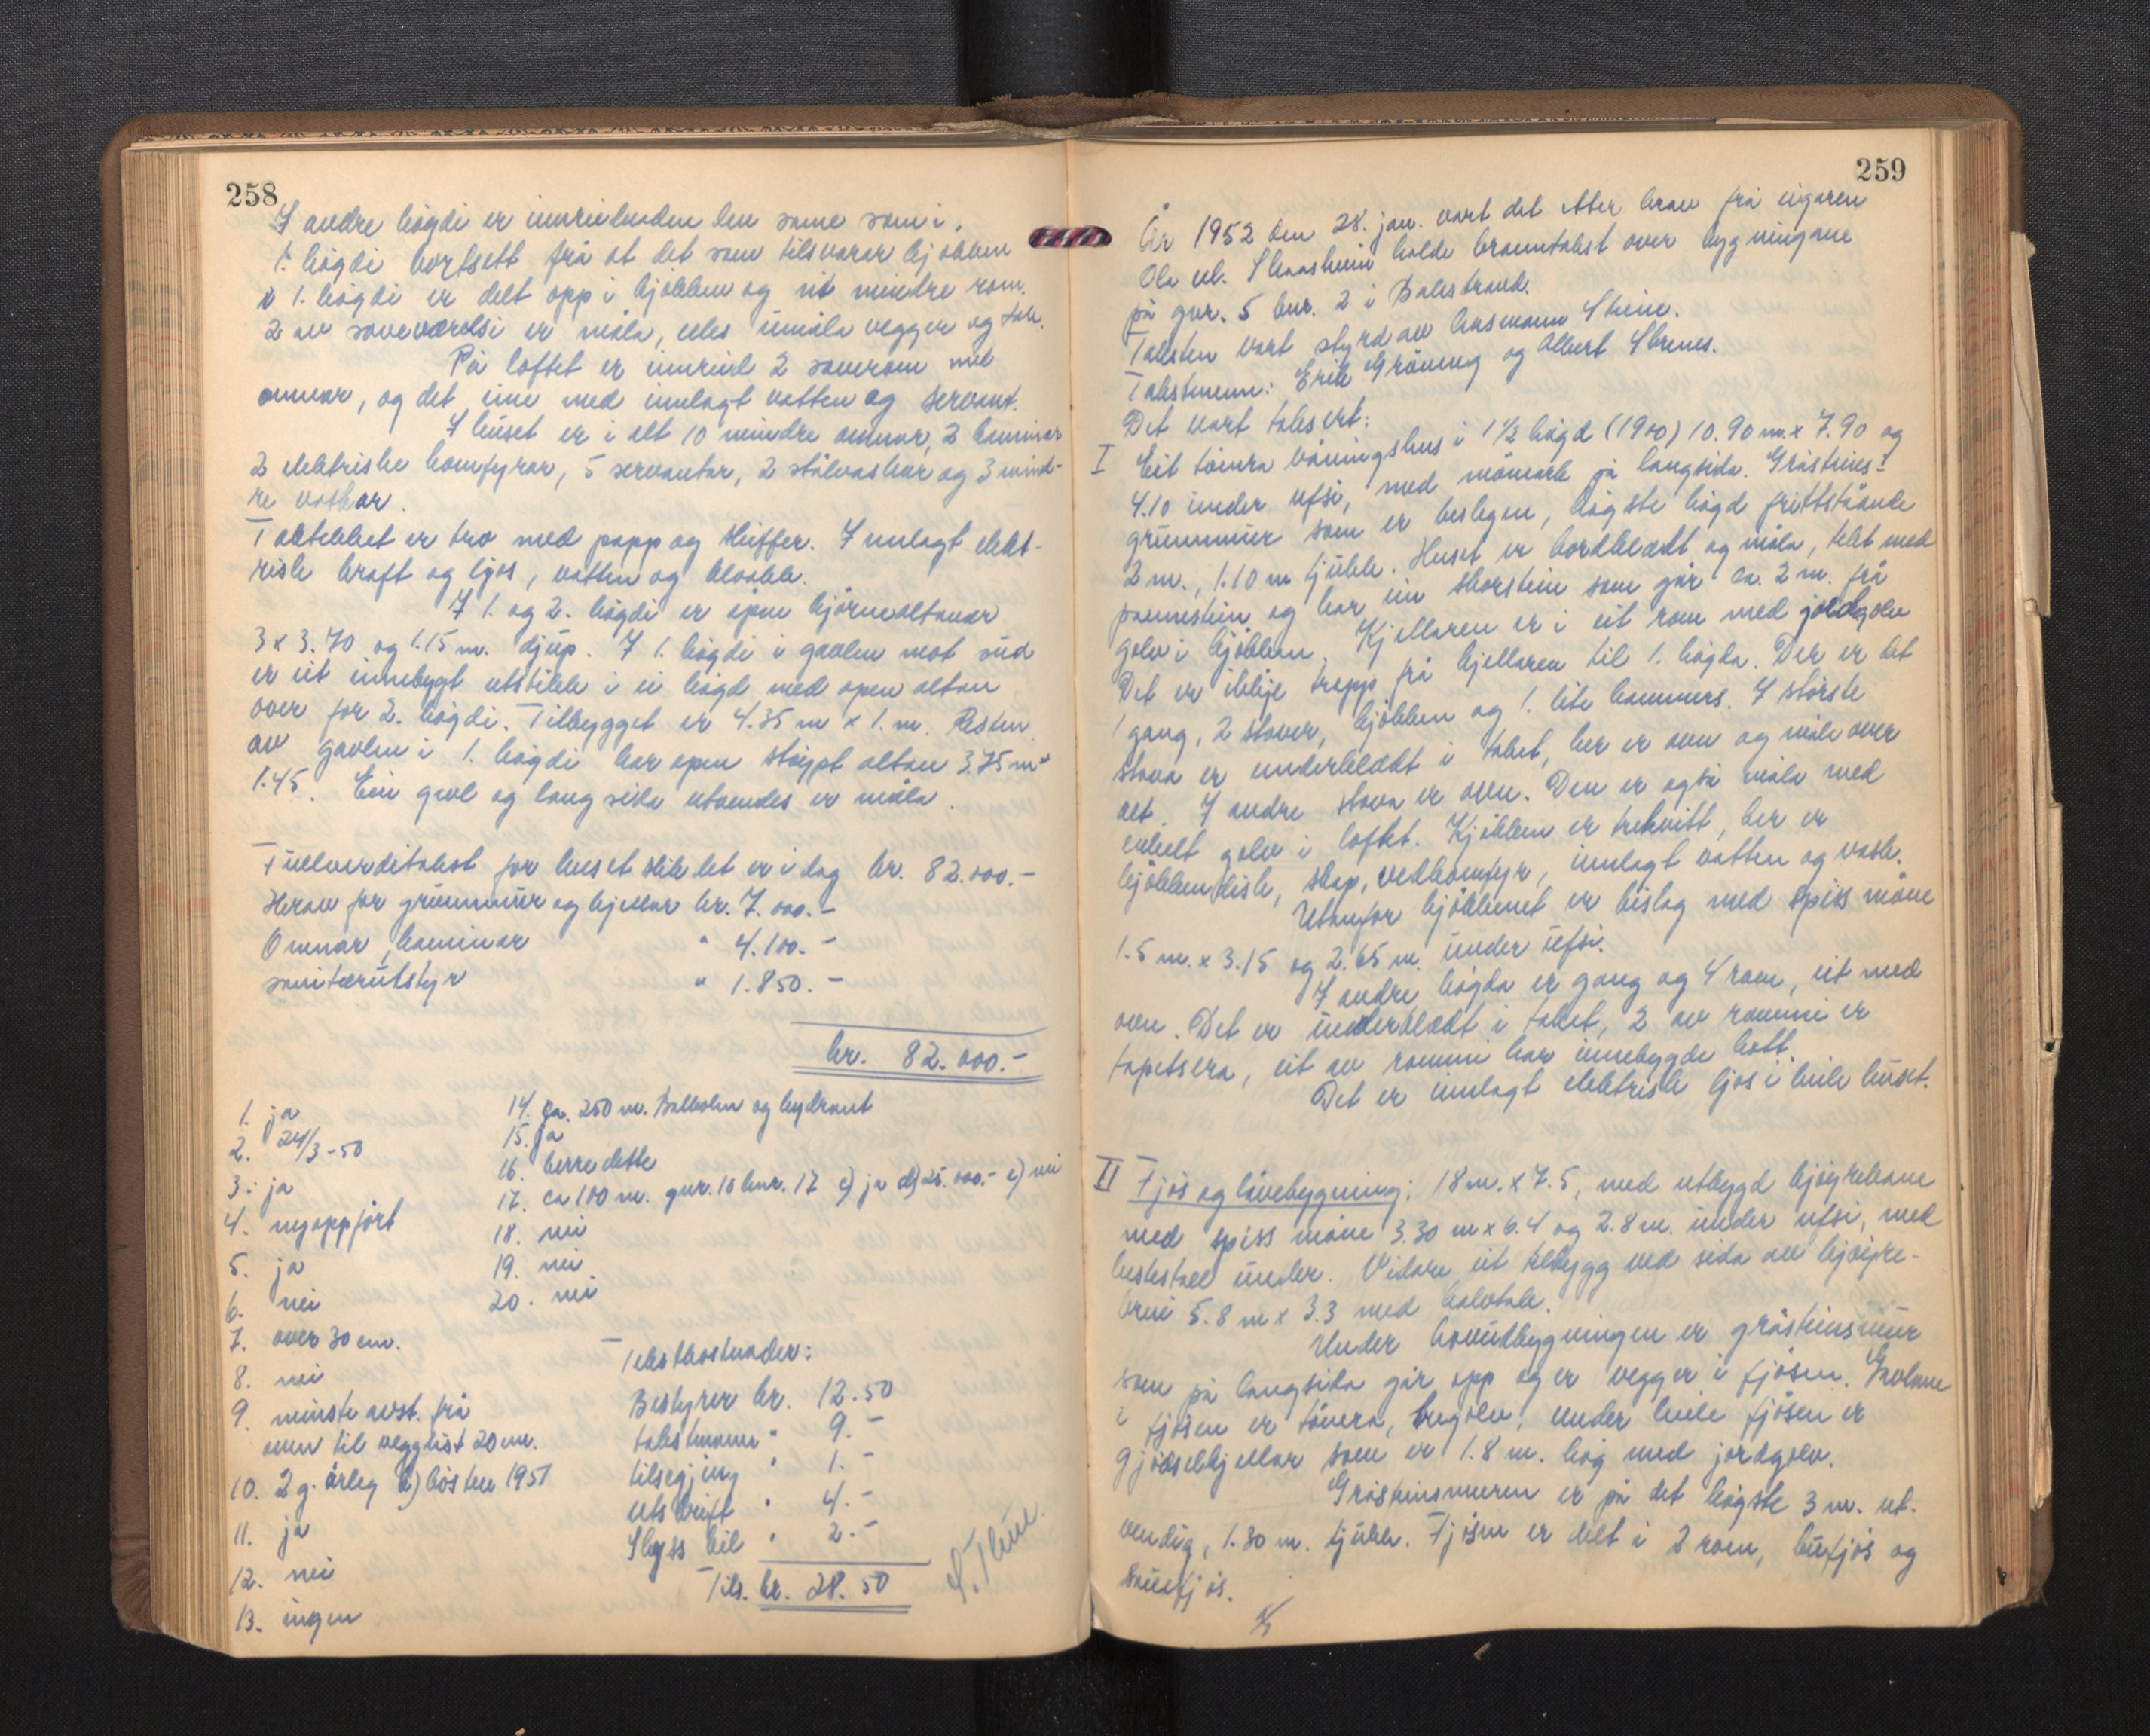 258
I andre høgdi er innreiinga den same som i
1. høgdi bortsett frå at det som tilsvarar kjøkken
i 1. høgdi er delt opp i kjøkken og eit mindre rom.
2 av soveværelsi er måla, elles umåla vegger og tak.
På loftet er innreidd 2 soverom med
omnar, og det eine med innlagt vatten og servant.
I huset er i alt 10 mindre omnar, 2 kaminar
2 elektriske komfyrar, 5 servantar, 2 stålvaskar og 3 mind-
re vaskar.
Taktekket er tro med papp og skiffer. Innlagt elekt-
risk kraft og ljos, vatten og kloakk.
I 1. og 2. høgdi er åpne hjørnealtanar
3 x 3.70 og 1.15 m. djup. I 1. høgdi i gavlen mot sud
er eit innebygt utstikk i ei høgd med open altan
over for 2. høgdi. Tilbygget er 4.35 m x 1. m. Resten
av gavlen i 1. høgdi har open støypt altan 3.75 m x
1.45. Ein gavl og langsida utvendes er måla.
Fullverditakst for huset slik det er i dag kr. 82.000.-
Herav for grunnmur og kjellar kr. 7.000.-
Omnar, kaminar " 4.100.-
sanitærutstyr " 1.850.-
kr. 82.000.-
1. ja
2. 24/3-50
3. ja
4. nyoppført
5. ja
6. nei
7. over 30 cm.
8. nei
9. minste avst. frå
omn til vegglist 20 cm.
10. 2 g. årleg b) hösten 1951
11. ja
12. nei
13. ingen
14. ca. 250 m. Balholm og hydrant
15. ja
16. berre dette
17. ca 100 m. gnr. 10 bnr. 17 c) ja d) 25.000.- e) nei
18. nei
19. nei
20. nei
Takstkostnader:
Bestyrer kr. 12.50
takstmenn " 9.-
tilsegjing " 1.-
utskrift " 4.-
Skyss bil " 2.-
Tils. kr. 28.50
259
År 1952 den 28. jan. vart det etter krav frå eigaren
Ola vl. Skaasheim halde branntakst over bygningane
på gnr. 5 bnr. 2 i Balestrand.
Taksten vart styrd av lensmann Steine.
Takstmenn: Erik Grøneng og Albert Skrenes.
Det vart taksert:
I Eit tømra våningshus i 1½ høgd (1900) 10.90 m. x 7.90 og
4.10 under ufsi, med møneark på langsida. Gråsteins-
grunnmur som er beslegen, høgste høgd frittståande
2 m., 1.10 m tjukk. Huset er bordkledt og måla, tekt med
pannestein og har ein skorstein som går ca. 2 m. frå
golv i kjøkken. Kjellaren er i eit rom med jordgolv
Det er ikkje trapp frå kjellaren til 1. høgda. Der er det
1 gang, 2 stover, kjøkken og 1. lite kammers. I største
stova er underkledt i taket, her er omn og måla over
alt. I andre stova er omn. Den er også måla med
enkelt golv i loftet. Kjøkken er trekvitt, her er
kjøkkendisk, skap, vedkomfyr, innlagt vatten og vask.
Utanfor kjøkkenet er bislag med spiss møne
1.5 m. x 3.15 og 2.65 m. under ufsi.
I andre høgda er gang og 4 rom, eit med
omn. Det er underkledt i taket, 2 av rommi er
tapetsera, eit av rommi har innebygde kott.
Det er innlagt elektrisk ljos i heile huset.
II Fjøs og løebygning: 18 m. x 7.5, med utbygd kjøyrebane
med spiss møne 3.30 m x 6.4 og 2.8 m. under ufsi, med
hestestall under. Vidare eit tilbygg ved sida av kjøyre-
brui 5.8 m x 3.3 med halvtak.
Under hovudbygningen er gråsteinsmur
som på langsida går opp og er vegger i fjøsen. Gavlane
i fjøsen er tømra, tregolv, under heile fjøsen er
gjødselkjellar som er 1.8 m. høg med jordgolv.
Gråsteinsmuren er på det høgste 3 m. ut-
vendig, 1.30 m. tjukk. Fjøsen er delt i 2 rom, kufjøs og
sauefjøs.